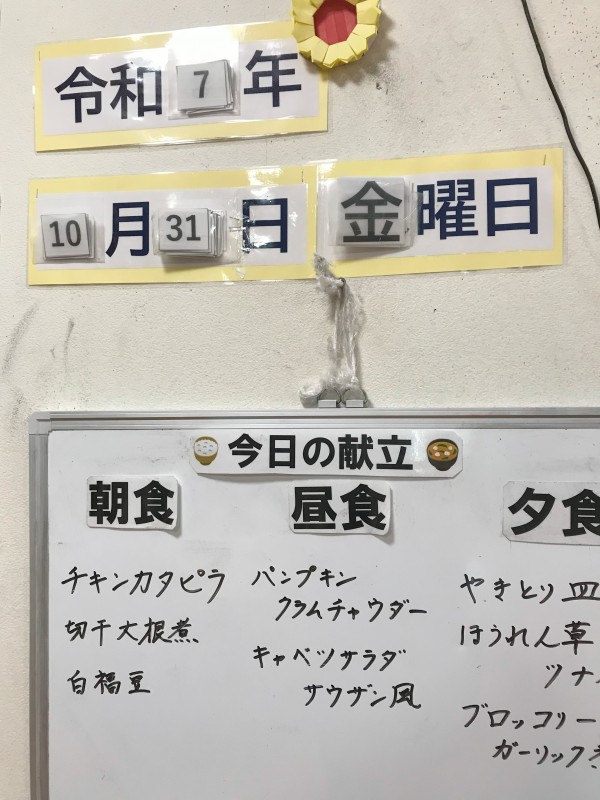 令和7年
10月31日 金曜日
今日の献立
朝食
チキンカタピラ
切干大根煮
白福豆
昼食
パンプキン
クラムチャウダー
キャベツサラダ
サウザン風
夕食
やきとり皿
ほうれん草
ツナ
ブロッコリー
ガーリック